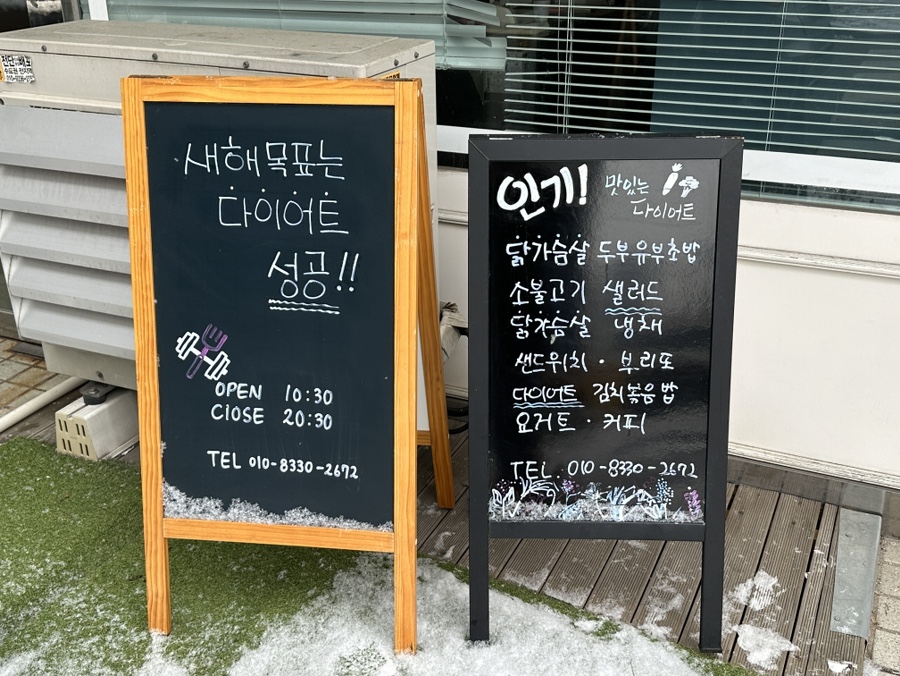 새해목표는
다이어트
성공!!
OPEN 10:30
ClOSE 20:30
TEL 010-8330-2672
인기! 맛있는
다이어트
닭가슴살 두부유부초밥
소불고기 샐러드
닭가슴살 냉채
샌드위치 · 부리또
다이어트 김치볶음밥
요거트 · 커피
TEL. 010-8330-2672